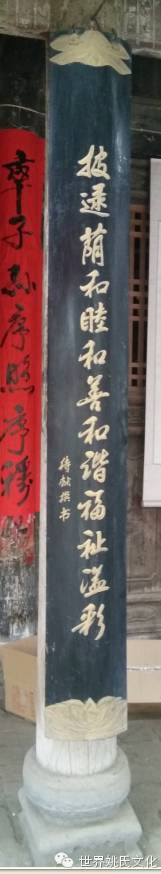 披逯荫和睦和善和谐福祉溢彩
待献撰书
率子孙序照序穆
世界姚氏文化